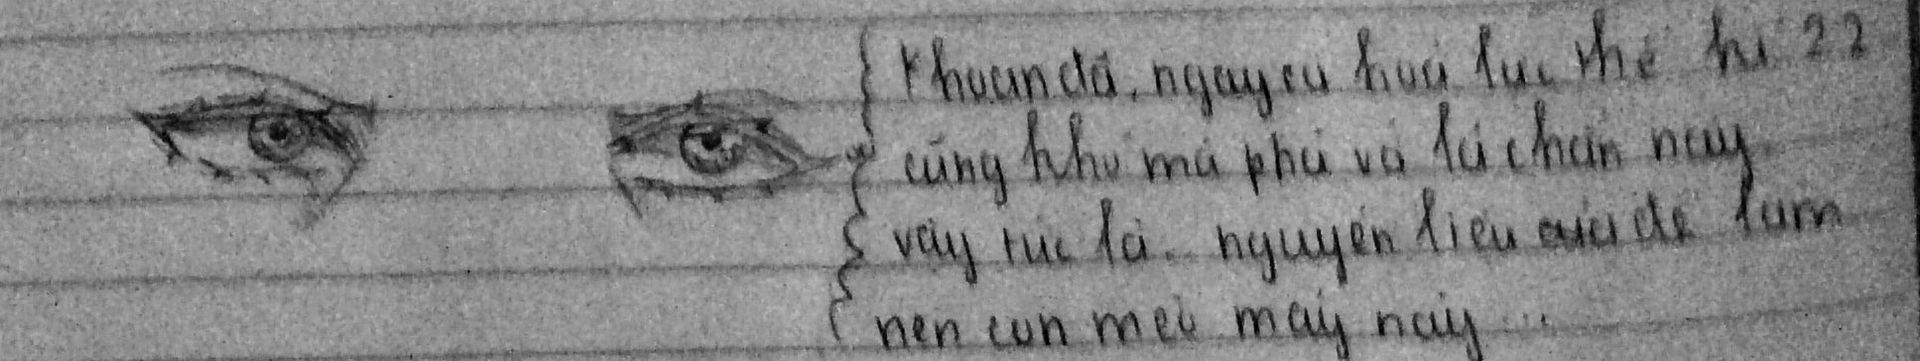 Khoan đã, ngay cả hoả lực thế kỉ 22
cũng khó mà phá vỡ lá chắn này
vậy tức là.. nguyên liệu của để làm
nên con mèo máy này...